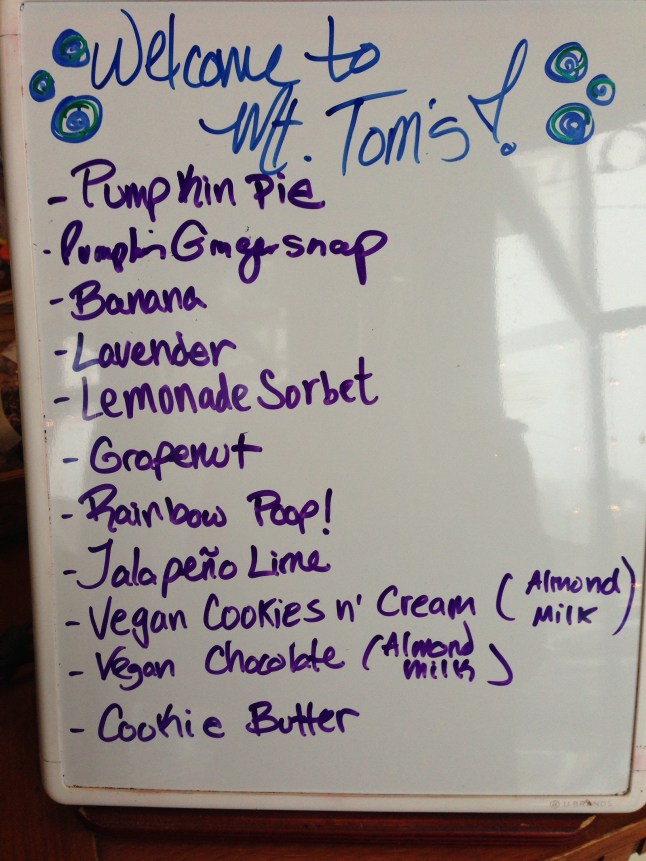 Welcome to
Mt. Tom's!
- Pumpkin Pie
- Pumpkin Gingersnap
- Banana
- Lavender
- Lemonade Sorbet
- Grapenut
- Rainbow Poop!
- Jalapeño Lime
- Vegan Cookies n' Cream (Almond Milk)
- Vegan Chocolate (Almond milk)
- Cookie Butter
U BRANDS